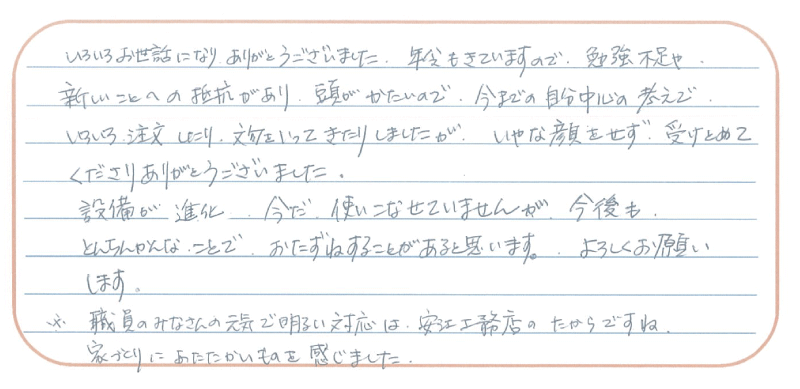 いろいろお世話になり ありがとうございました。年令もきていますので、勉強不足や、
新しいことへの抵抗があり 頭がかたいので、今までの自分中心の考えで、
いろいろ注文したり、文句をいってきたりしましたが、いやな顔をせず、受けとめて
くださりありがとうございました。
設備が進化、今だ、使いこなせていませんが、今後も、
とんちんかんな、ことで、おたずねすることがあると思います。よろしくお願い
します。
※ 職員のみなさんの元気で明るい対応は、安江工務店のたからですね。
家づくりにあたたかいものを感じました。